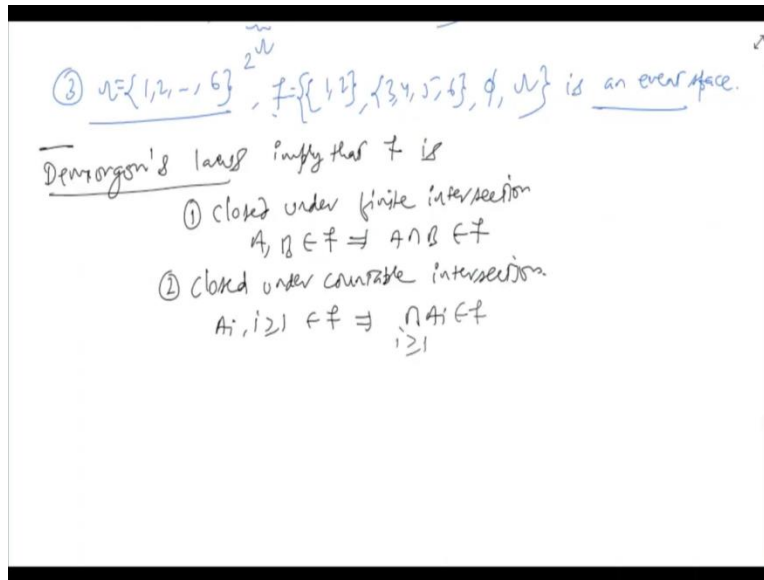 2^Ω
③ Ω={1,2,-,6}, F={{1,2},{3,4,5,6}, ϕ, Ω} is an event space.
Demorgon's laws imply that F is
① closed under finite intersection
A, B ∈ F ⇒ A∩B ∈ F
② closed under countable intersections.
Ai, i≥1 ∈ F ⇒ ∩Ai ∈ F
i≥1